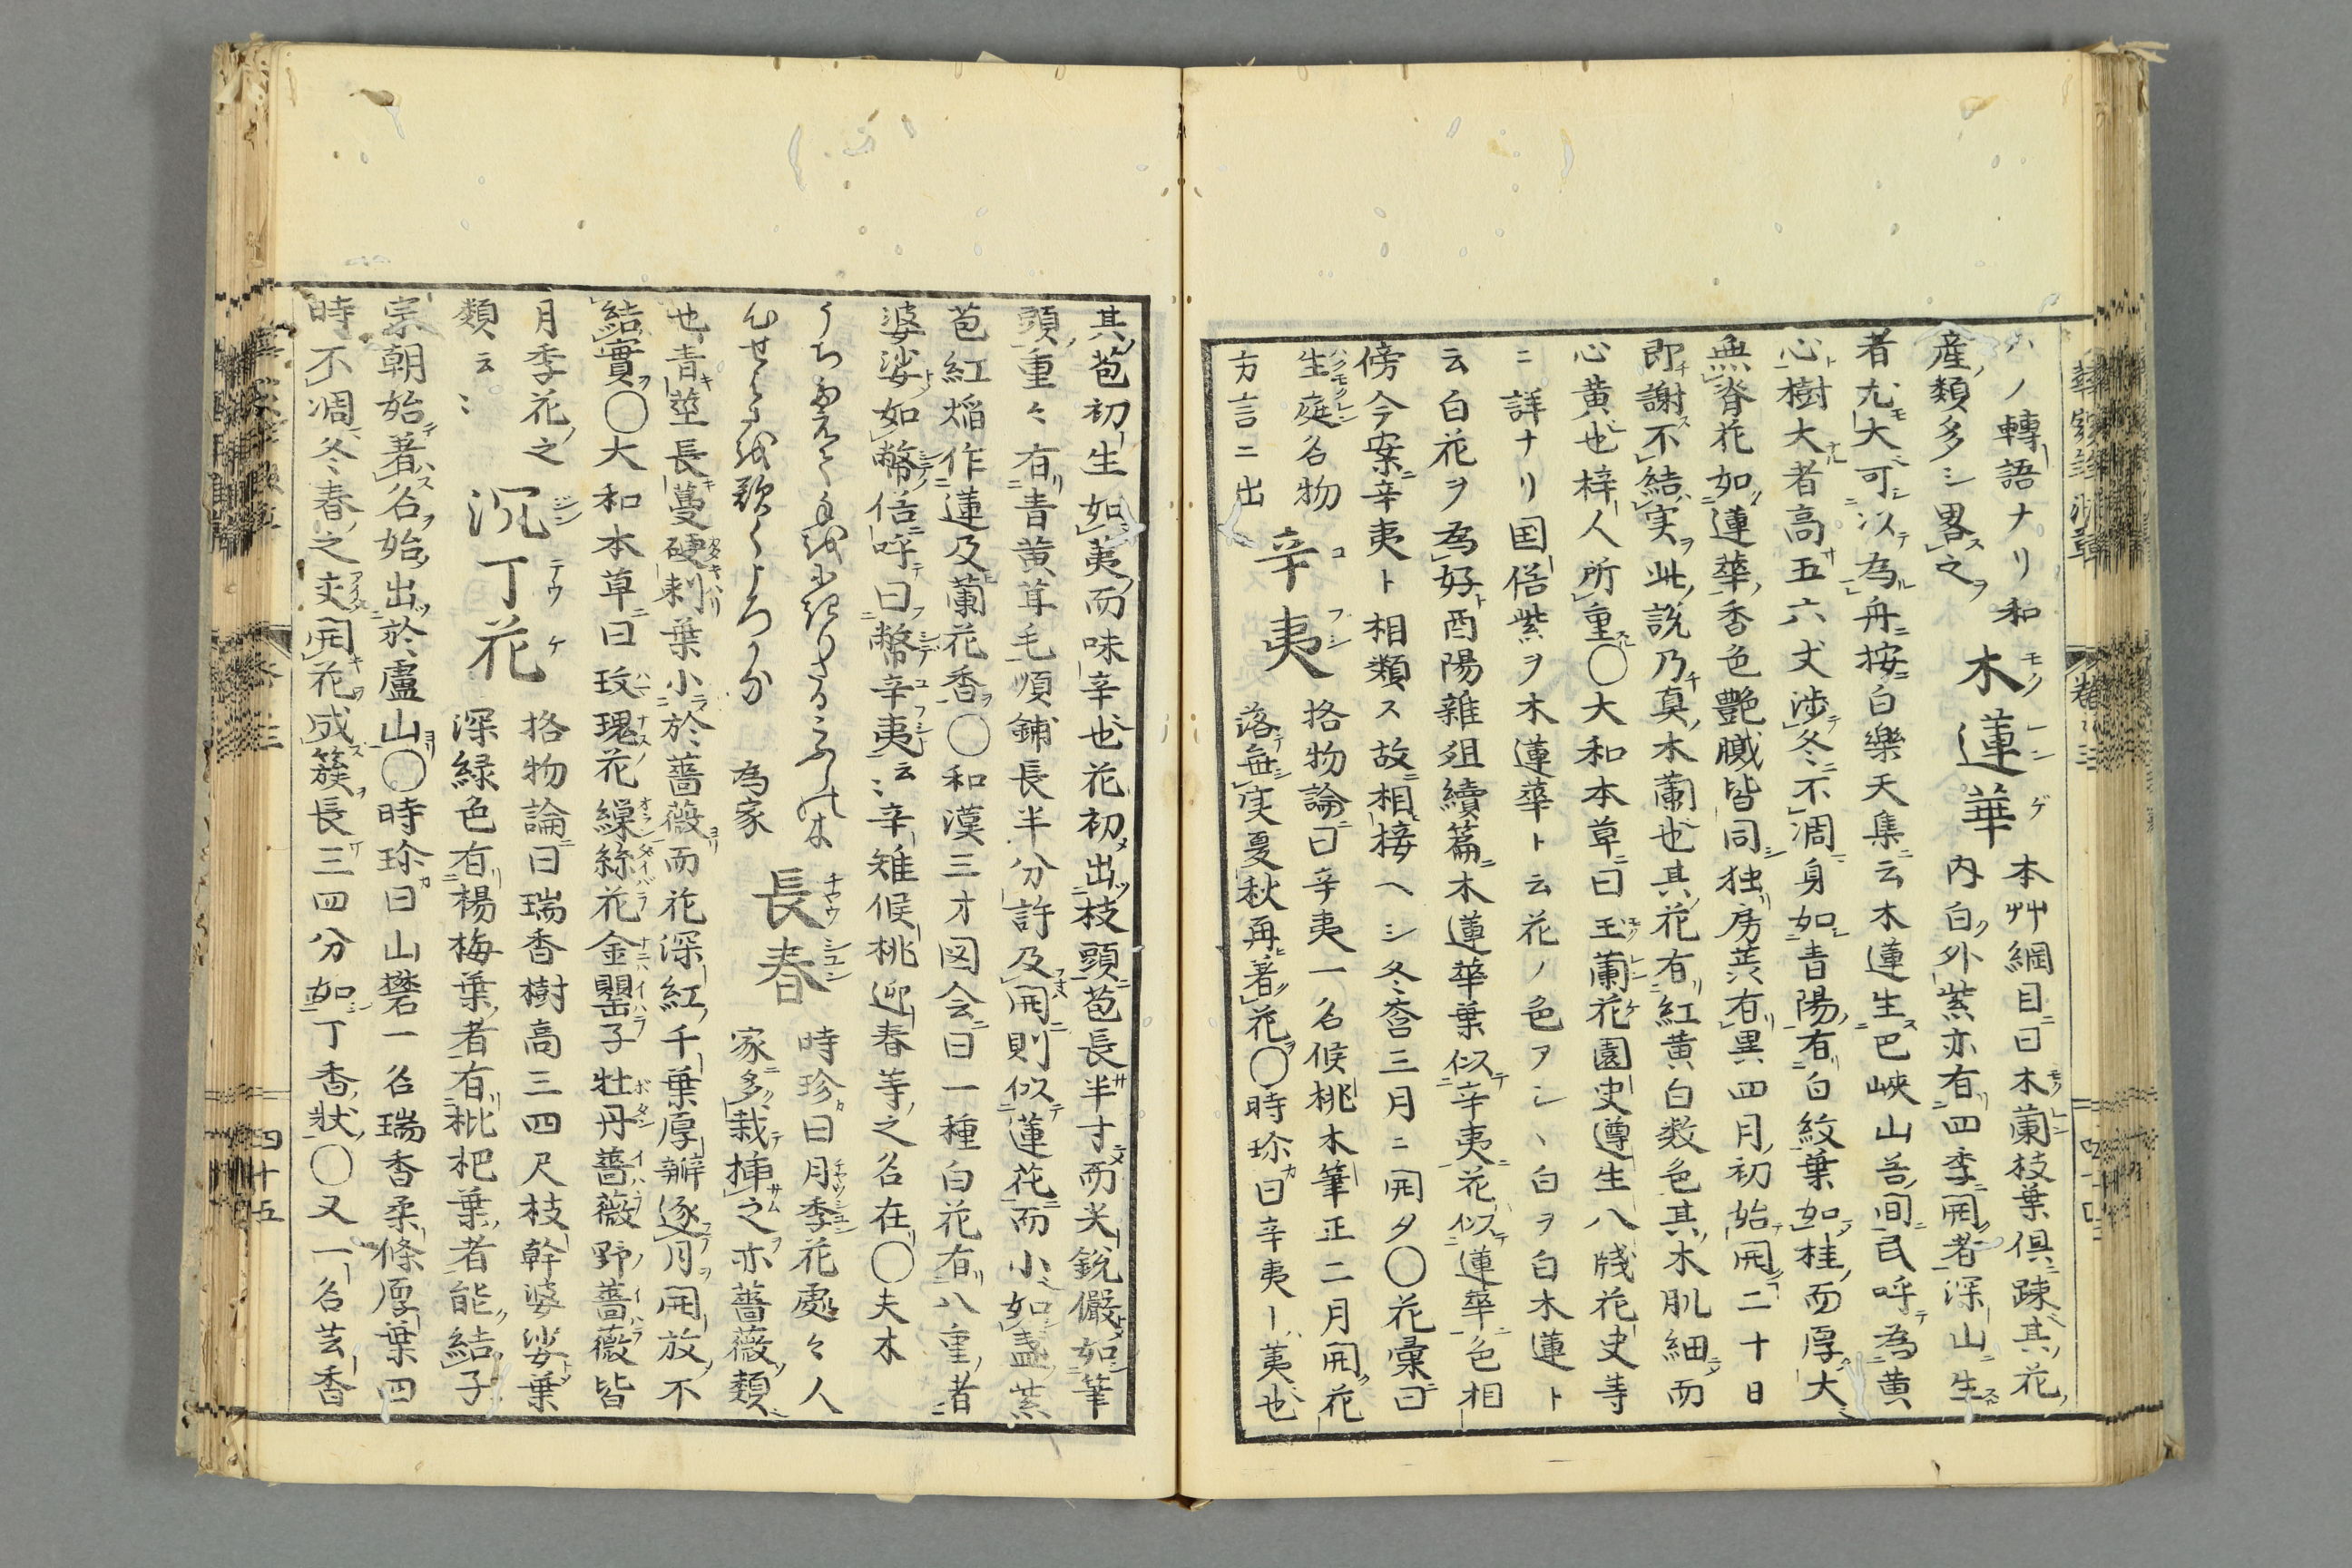 ハノ轉語ナリ和
産類多シ畧之
木蓮華
本艸綱目曰木蘭枝葉俱疎其花
内白外紫亦有四季開者深山生
者尤大可以為舟按白樂天集云木蓮生巴峡山谷間民呼為黄
心樹大者高五六丈渉冬不凋身如青陽有白紋葉如桂而厚大
無脊花如蓮華香色艶膩皆同独房蕋有異四月初始開二十日
即謝不結実此説乃真木蘭也其花有紅黄白数色其木肌細而
心黄也梓人所重〇大和本草曰玉蘭花園史遵生八牋花史等
ニ詳ナリ国俗紫ヲ木蓮華ト云花ノ色アシヽ白ヲ白木蓮ト
云白花ヲ為好酉陽雜俎續篇木蓮華葉似辛夷花似蓮華色相
傍今案辛夷ト相類ス故相接ヘシ冬蕾三月ニ開ク〇花彙曰
生庭名物
方言ニ出
辛夷
格物論曰辛夷一名候桃木筆正二月開花
落無実夏秋再著花〇時珍曰辛夷ー荑也
其苞初生如荑而味辛也花初出枝頭苞長半寸而尖鋭儼如筆
頭重々有青黄茸毛順鋪長半分許及開則似蓮花而小如盞紫
苞紅焔作蓮及蘭花香〇和漢三才図会曰一種白花有八重者
婆娑如幣俗呼曰幣辛夷云〻辛雉候桃迎春等之名在〇夫木
為家
長春
時珍曰月季花處々人
家多栽挿之亦薔薇類
也青莖長蔓硬刺葉小於薔薇而花深紅千葉厚瓣逐月開放不
結實〇大和本草曰玫瑰花繅絲花金罌子牡丹薔薇野薔薇皆
月季花之
類云〻
沉丁花
格物論曰瑞香樹高三四尺枝幹婆娑葉
深緑色有楊梅葉者有枇杷葉者能結子
宗朝始著名始出於盧山〇時珍曰山礬一名瑞香柔條厚葉四
時不凋冬春之交開花成簇長三四分如丁香状〇又一名芸香
四十五